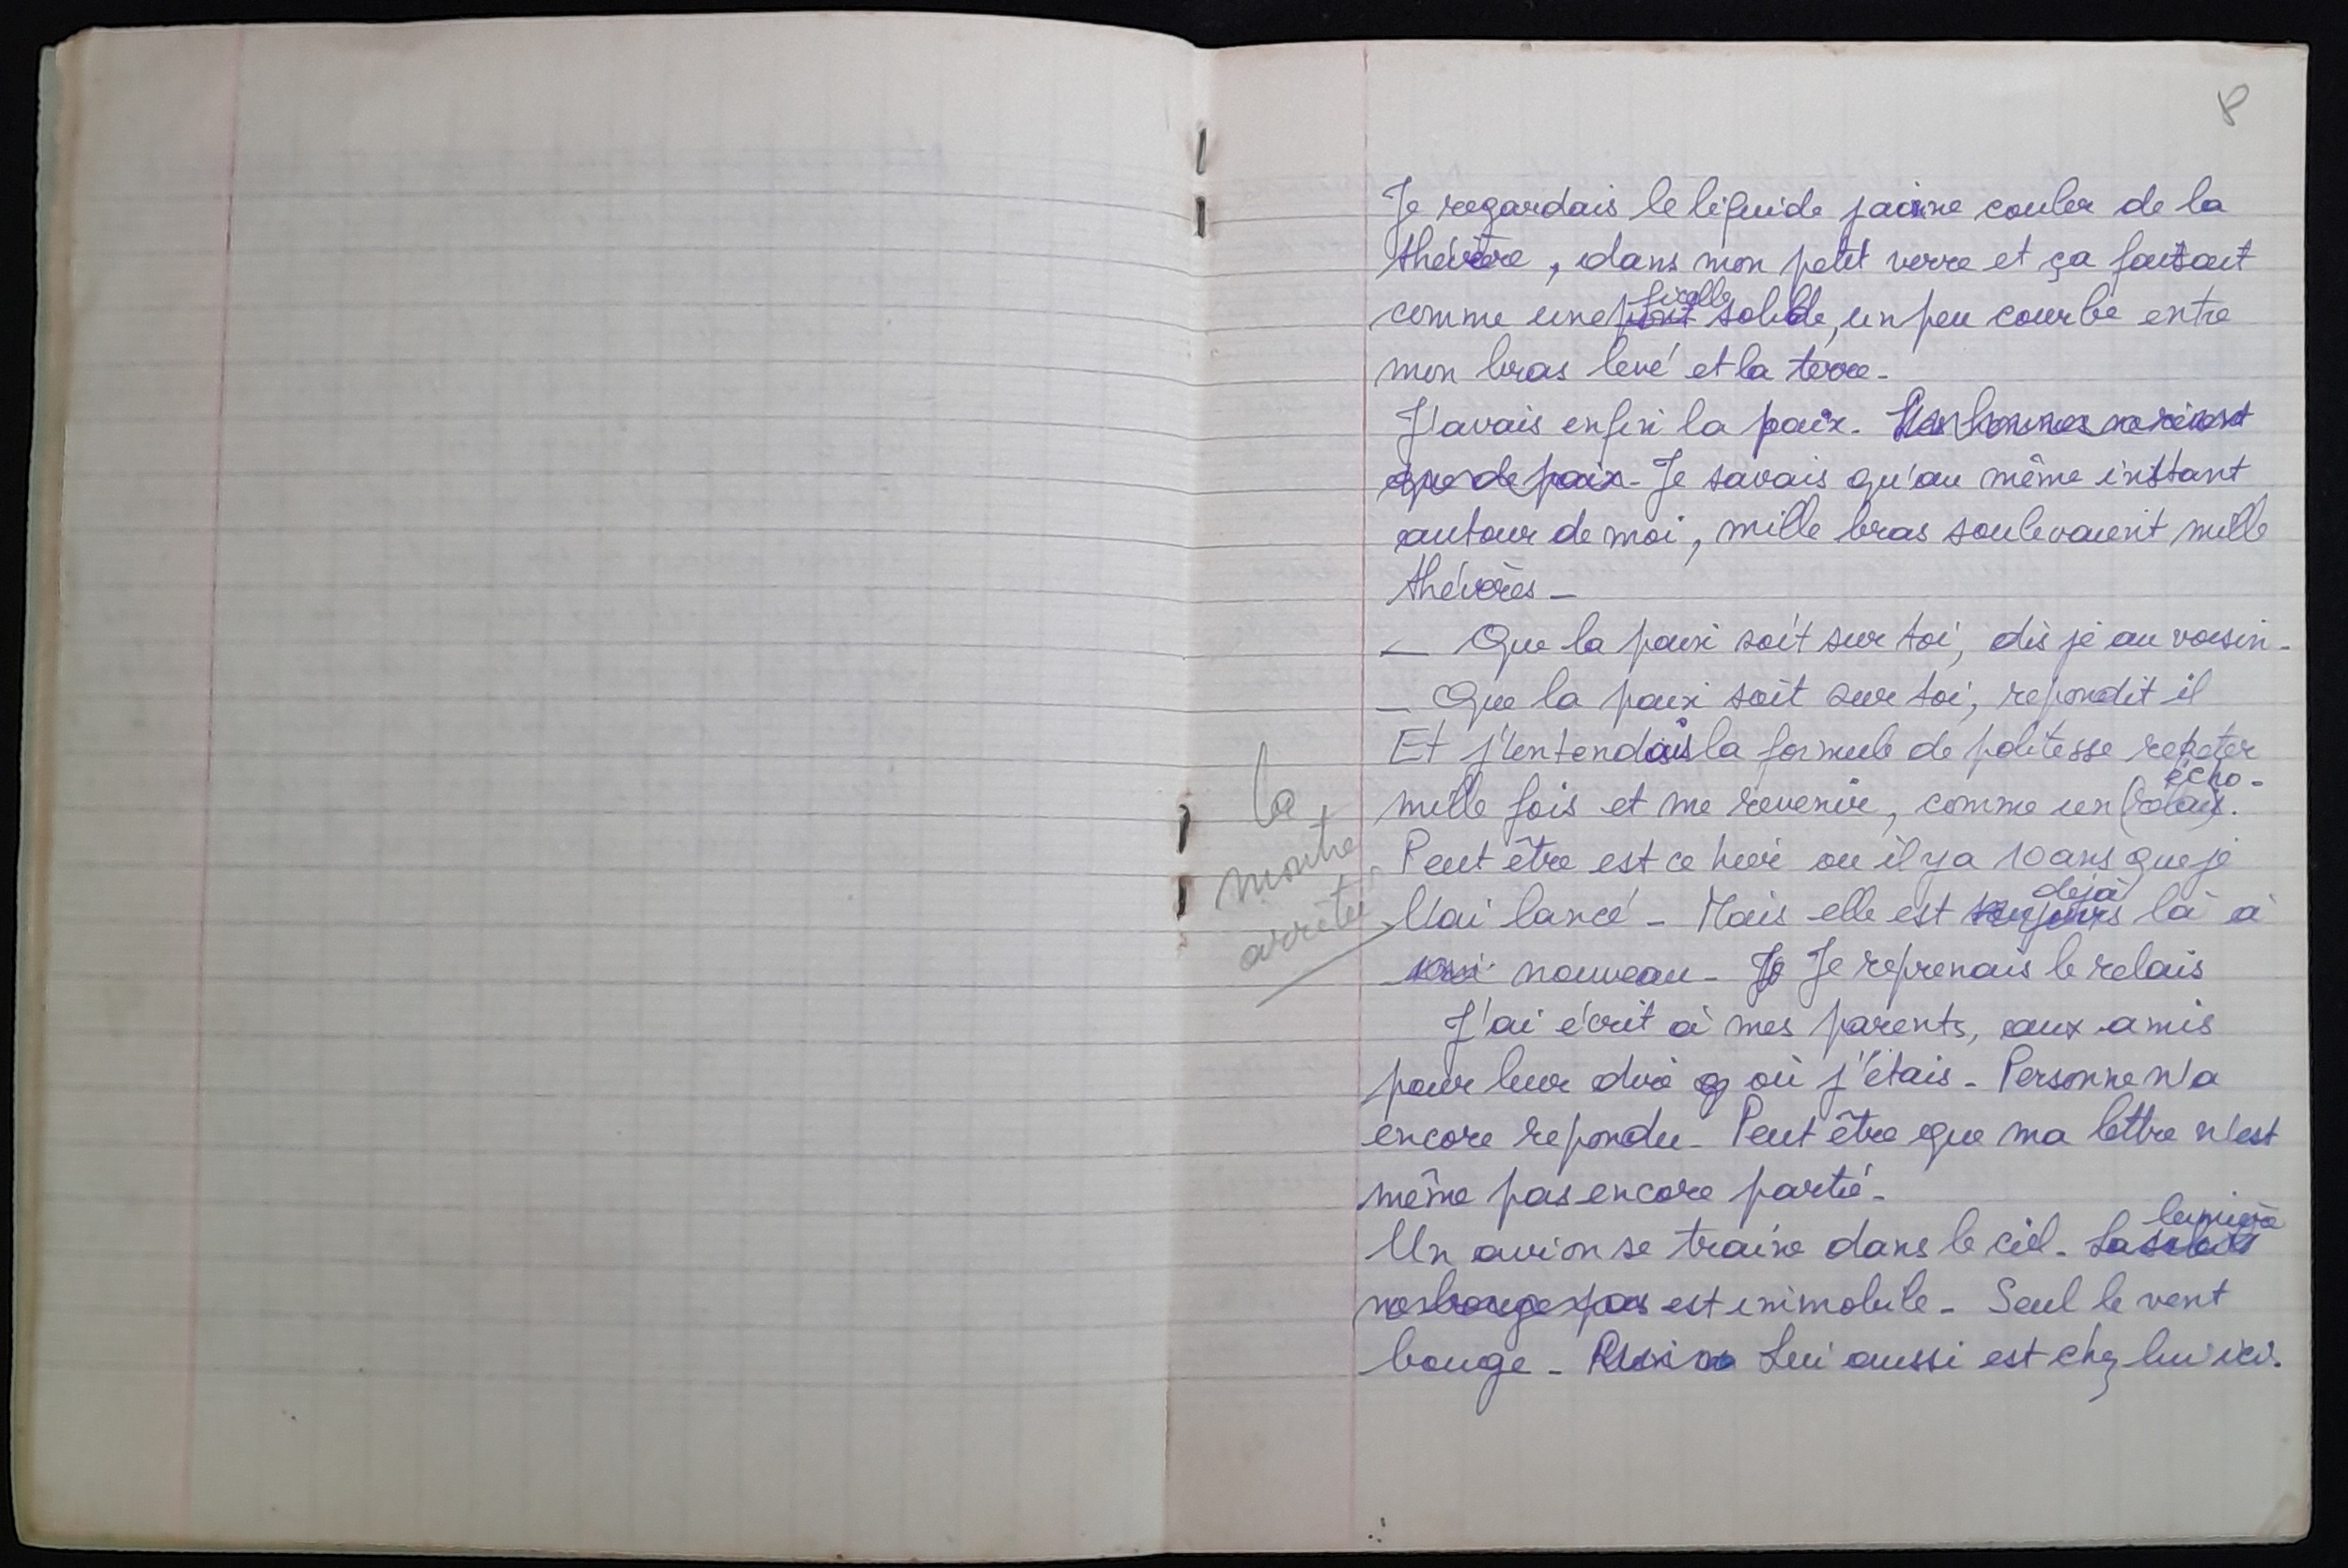 8
Je regardais le liquide jaune couler de la
théière, dans mon petit verre et ça faisait
comme une pont ficelle solide, un peu courbe entre
mon bras levé et la terre -
J'avais enfin la paix. Les hommes ne rêvent
que de paix - Je savais qu'au même instant
autour de moi, mille bras soulevaient mille
théières -
- Que la paix soit sur toi, dis je au voisin -
- Que la paix soit sur toi, repondit il
Et j'entendais la formule de politesse repeter
mille fois et me revenir, comme un (relais). écho -
Peut être est ce hier ou il y a 10 ans que je
l'ai lancé - Mais elle est toujours déjà là à
nouveau - Je Je reprenais le relais
la
montre
arrêtée
J'ai écrit à mes parents, aux amis
pour leur dire q où j'étais - Personne n'a
encore repondu - Peut être que ma lettre n'est
même pas encore partie -
Un avion se traine dans le ciel - La lumière
ne bouge pas est immobile - Seul le vent
bouge - Lui aussi est chez lui ici.